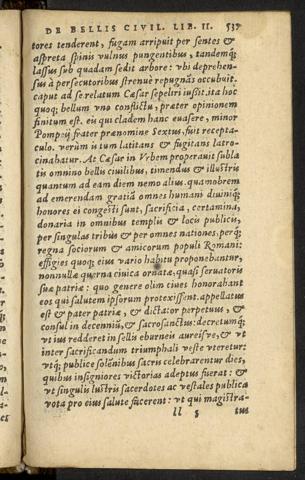 DE BELLIS CIVIL. LIB. II. 537
tores tenderent, fugam arripuit per sentes &
aspreta spinis vulnus pungentibus, tandemq;
lassus sub quadam sedit arbore: vbi deprehen-
sus à persecutoribus strenuè repugnãs occubuit.
caput ad se relatum Cæsar sepeliri iussit. ita hoc
quoq; bellum vno conflictu, præter opinionem
finitum est. ei qui cladem hanc euasere, minor
Pompeij frater prænomine Sextus, fuit recepta-
culo. verùm is tum latitans & fugitans latro-
cinabatur. At Cæsar in Vrbem properauit subla
tis omnino bellis ciuilibus, timendus & illustris
quantum ad eam diem nemo alius. quamobrem
ad emerendam gratiã omnes humani diuiniq;
honores ei congesti sunt, sacrificia, certamina,
donaria in omnibus templis & locis publicis,
per singulas tribus & per omnes nationes. perq;
regna sociorum & amicorum populi Romani:
effigies quoq; eius vario habitu proponebantur,
nonnullæ querna ciuica ornatæ. quasi seruatoris
suæ patriæ: quo genere olim ciues honorabant
eos qui salutem ipsorum protexissent. appellatus
est & pater patriæ, & dictator perpetuus, &
consul in decenniũ, & sacrosanctus: decretumq;
vt ius redderet in sellis eburneis aureisve, & vt
inter sacrificandum triumphali veste vteretur:
vtq; publice solẽnibus sacris celebrarentur dies,
quibus insigniores victorias adeptus fuerat: &
vt singulis lustris sacerdotes ac vestales publica
vota pro eius salute facerent: vt qui magistra-
ll 5 tus